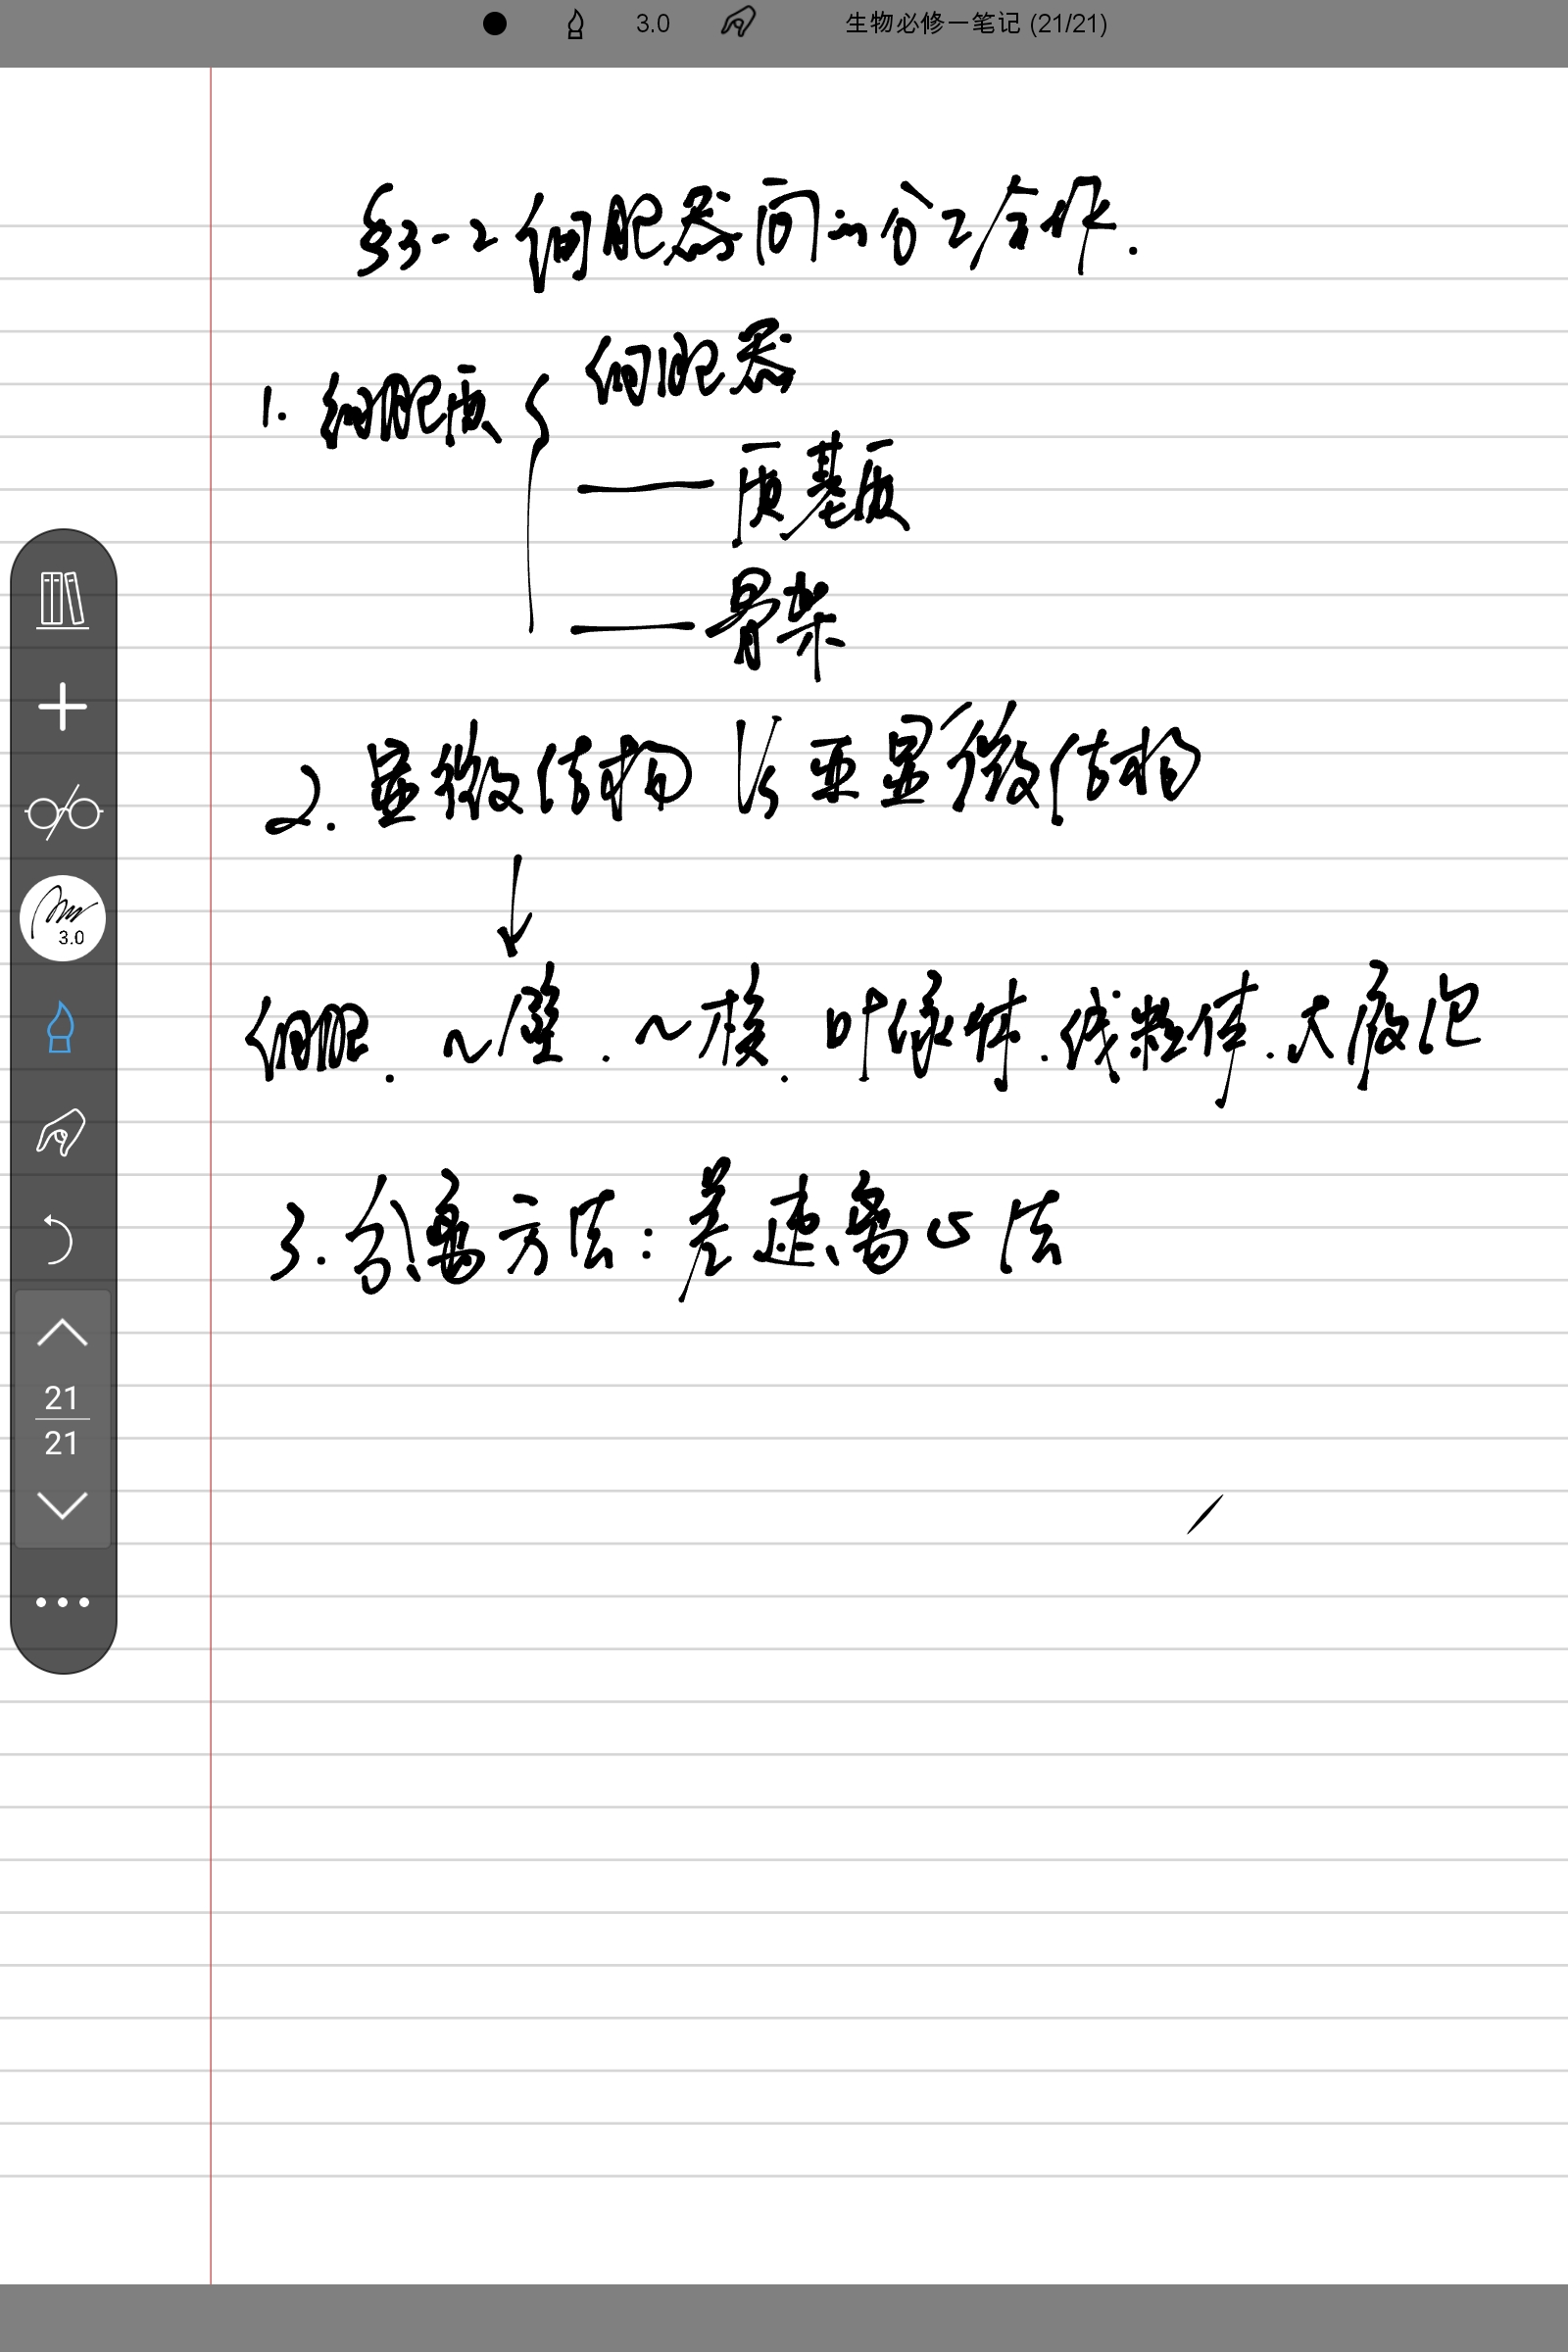 3.0 生物必修一笔记 (21/21)
§3-2 细胞器间的分工合作.
1. 细胞质 { 细胞器
—— 质基质
—— 骨架
2. 显微结构 Vs 亚显微结构
↓
细胞. ~壁. ~核. 叶绿体. 线粒体. 大液泡
3. 分离方法: 差速离心法
3.0
21
21